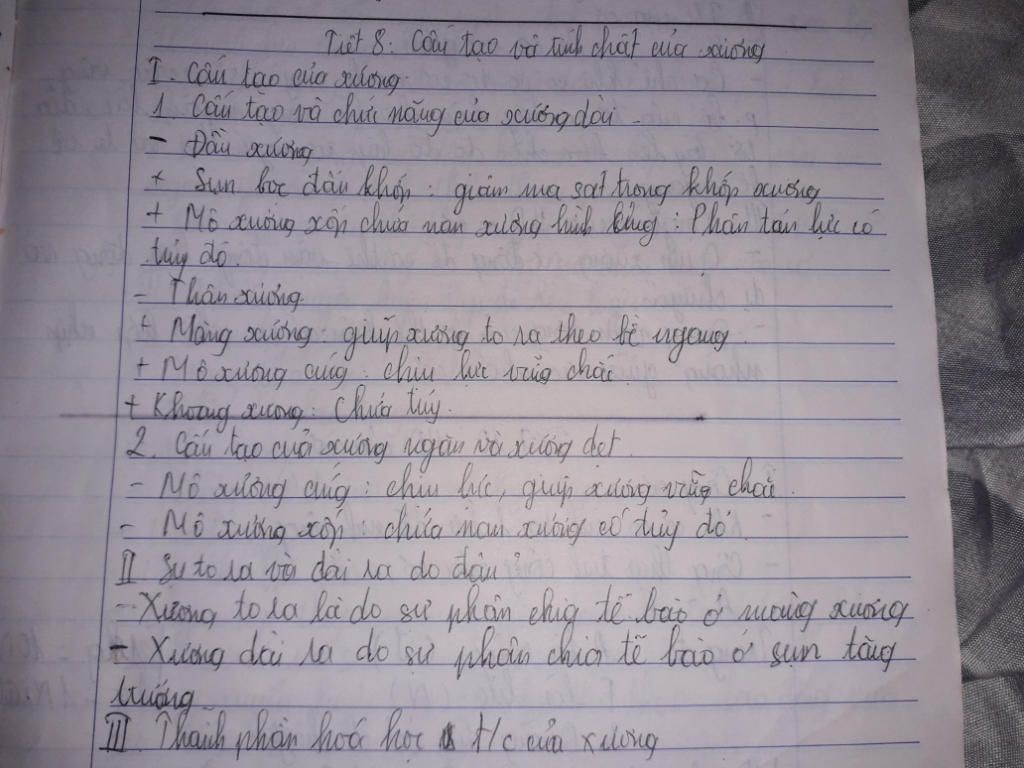 Tiết 8: Cấu tạo và tính chất của xương
I. Cấu tạo của xương
1. Cấu tạo và chức năng của xương dài
- Đầu xương
+ Sụn bọc đầu khớp: giảm ma sát trong khớp xương
+ Mô xương xốp chứa nan xương hình: Phân tán lực có
tủy đỏ
- Thân xương
+ Màng xương: giúp xương to ra theo bề ngang
+ Mô xương cứng: chịu lực vững chắc
+ Khoang xương: Chứa tủy.
2. Cấu tạo của xương ngắn và xương dẹt
- Mô xương cứng: chịu lực, giúp xương vững chắc.
- Mô xương xốp chứa nan xương có tủy đỏ
II Sự to ra và dài ra do đâu
- Xương to ra là do sự phân chia tế bào ở màng xương
- Xương dài ra do sự phân chia tế bào ở sụn tăng
trưởng
III. Thành phần hoá học t/c của xương